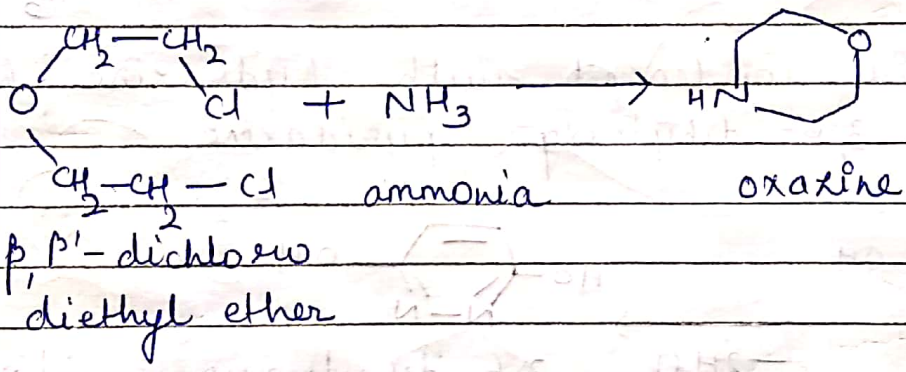 CH₂—CH₂
O Cl + NH₃ → HN O
CH₂—CH₂—Cl ammonia oxazine
β,β'-dichloro
diethyl ether